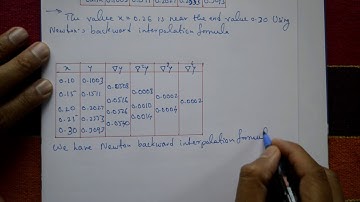 The value x = 0.26 is near the end value 0.30 Using
Newton's backward interpolation formula
x y ∇y ∇²y ∇³y ∇⁴y
0.10 0.1003
0.0508
0.15 0.1511 0.0008
0.0516 0.0002
0.20 0.2027 0.0010 0.0002
0.0526 0.0004
0.25 0.2553 0.0014
0.0540
0.30 0.3093
We have Newton backward interpolation formula